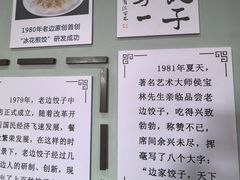 饺子
第一
1980年老边原创首创
“冰花煎饺”研发成功
1979年，老边饺子中
店正式成立，随着改革开
国民经济飞速发展，餐
业繁荣发展，在这样的时
景下，老边饺子经过几
边人的研制、创新，现
1981年夏天，
著名艺术大师侯宝
林先生亲临品尝老
边饺子，吃得兴致
勃勃，称赞不已，
席间余兴未尽，挥
毫写了八个大字：
“边家饺子，天下